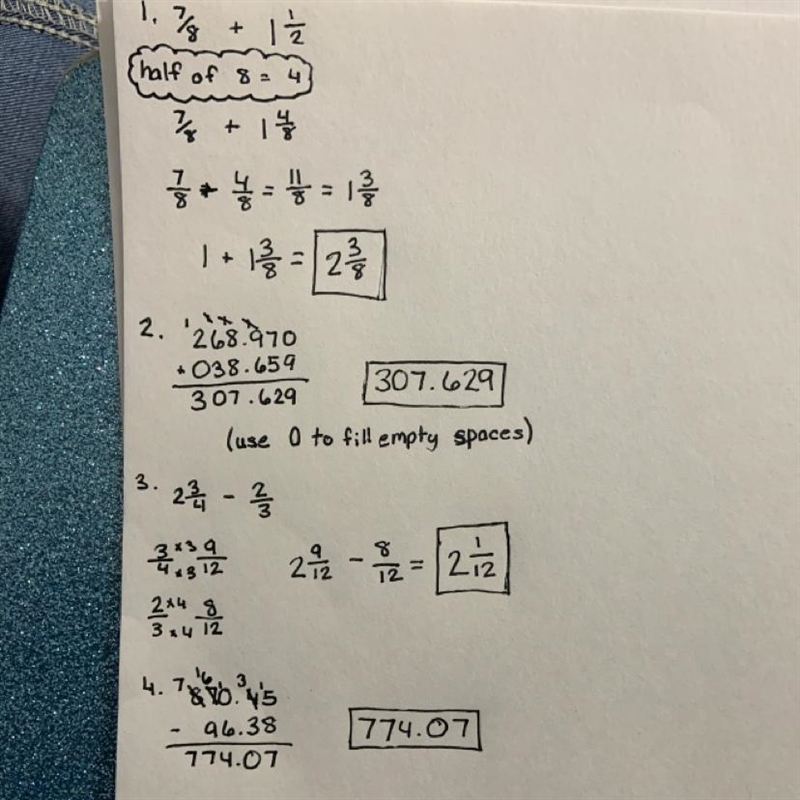 1. 7/8 + 1 1/2
half of 8 = 4
7/8 + 1 4/8
7/8 + 4/8 = 11/8 = 1 3/8
1 + 1 3/8 = 2 3/8
2. 268.970
+ 038.659
307.629
307.629
(use 0 to fill empty spaces)
3. 2 3/4 - 2/3
3/4 x3 x3 9/12
2 9/12 - 8/12 = 2 1/12
2/3 x4 x4 8/12
4. 870.45
- 96.38
774.07
774.07